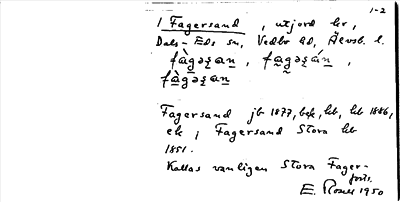 1-2
1 Fagersand, utjord hr,
Dals-Eds sn, Vedbo hd, Älvsb. l.
fàgəʂan, fagəʂán,
fàgəʂan
Fagersand jb 1877, bek, hb, hb 1886,
ek; Fagersand Stora hb
1851.
Kallas vanligen Stora Fager-
E. Rosell 1950